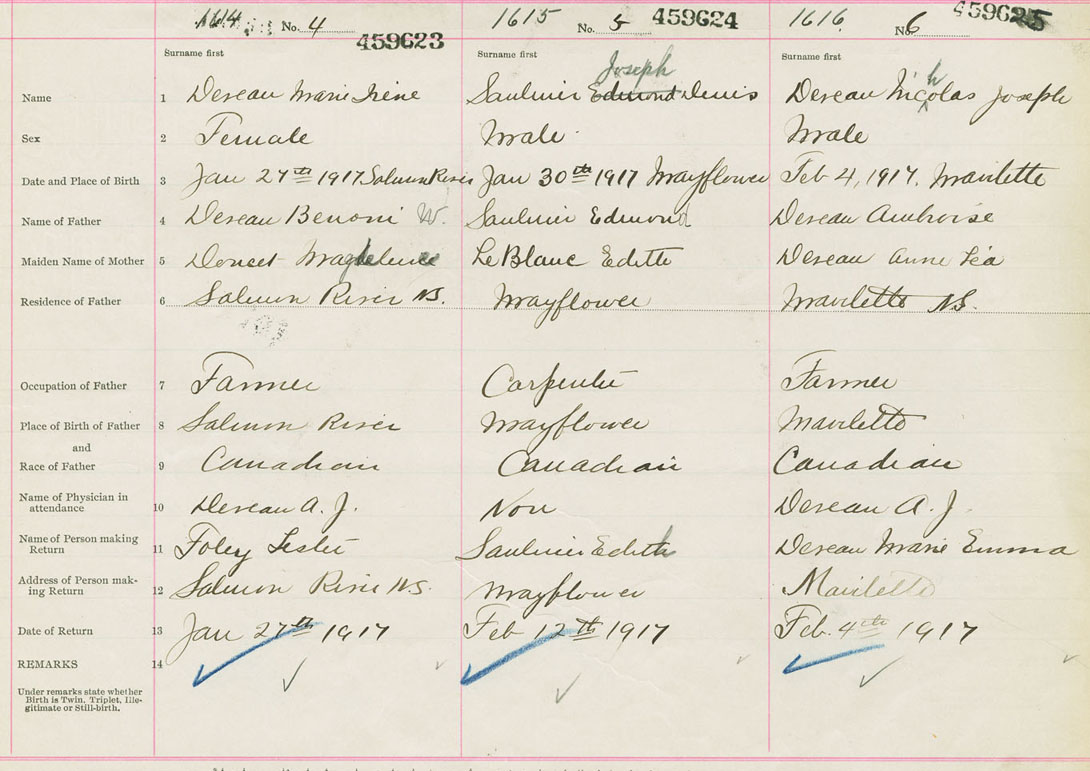 1614 No. 4 459623 1615 No. 5 459624 1616 No. 6 459625
Surname first Surname first Surname first
Joseph
Name 1 Deveau Marie Irene Saulnier Edmond Denis Deveau Nicholas Joseph
Sex 2 Female Male Male
Date and Place of Birth 3 Jan 27th 1917 Salmon River Jan 30th 1917 Mayflower Feb 4, 1917. Mavilette
Name of Father 4 Deveau Benoni W. Saulnier Edmond Deveau Ambroise
Maiden Name of Mother 5 Doucet Magdeleine Le Blanc Edith Deveau Anne Léa
Residence of Father 6 Salmon River N.S. Mayflower Mavilette N.S.
Occupation of Father 7 Farmer Carpenter Farmer
Place of Birth of Father 8 Salmon River Mayflower Mavilette
and
Race of Father 9 Canadian Canadian Canadian
Name of Physician in
attendance 10 Deveau A. J. Non Deveau A. J.
Name of Person making
Return 11 Foley Leslie Saulnier Edith Deveau Marie Emma
Address of Person mak-
ing Return 12 Salmon River N.S. Mayflower Mavilette
Date of Return 13 Jan 27th 1917 Feb 12th 1917 Feb. 4th 1917
REMARKS 14
Under remarks state whether
Birth is Twin, Triplet, Ille-
gitimate or Still-birth.